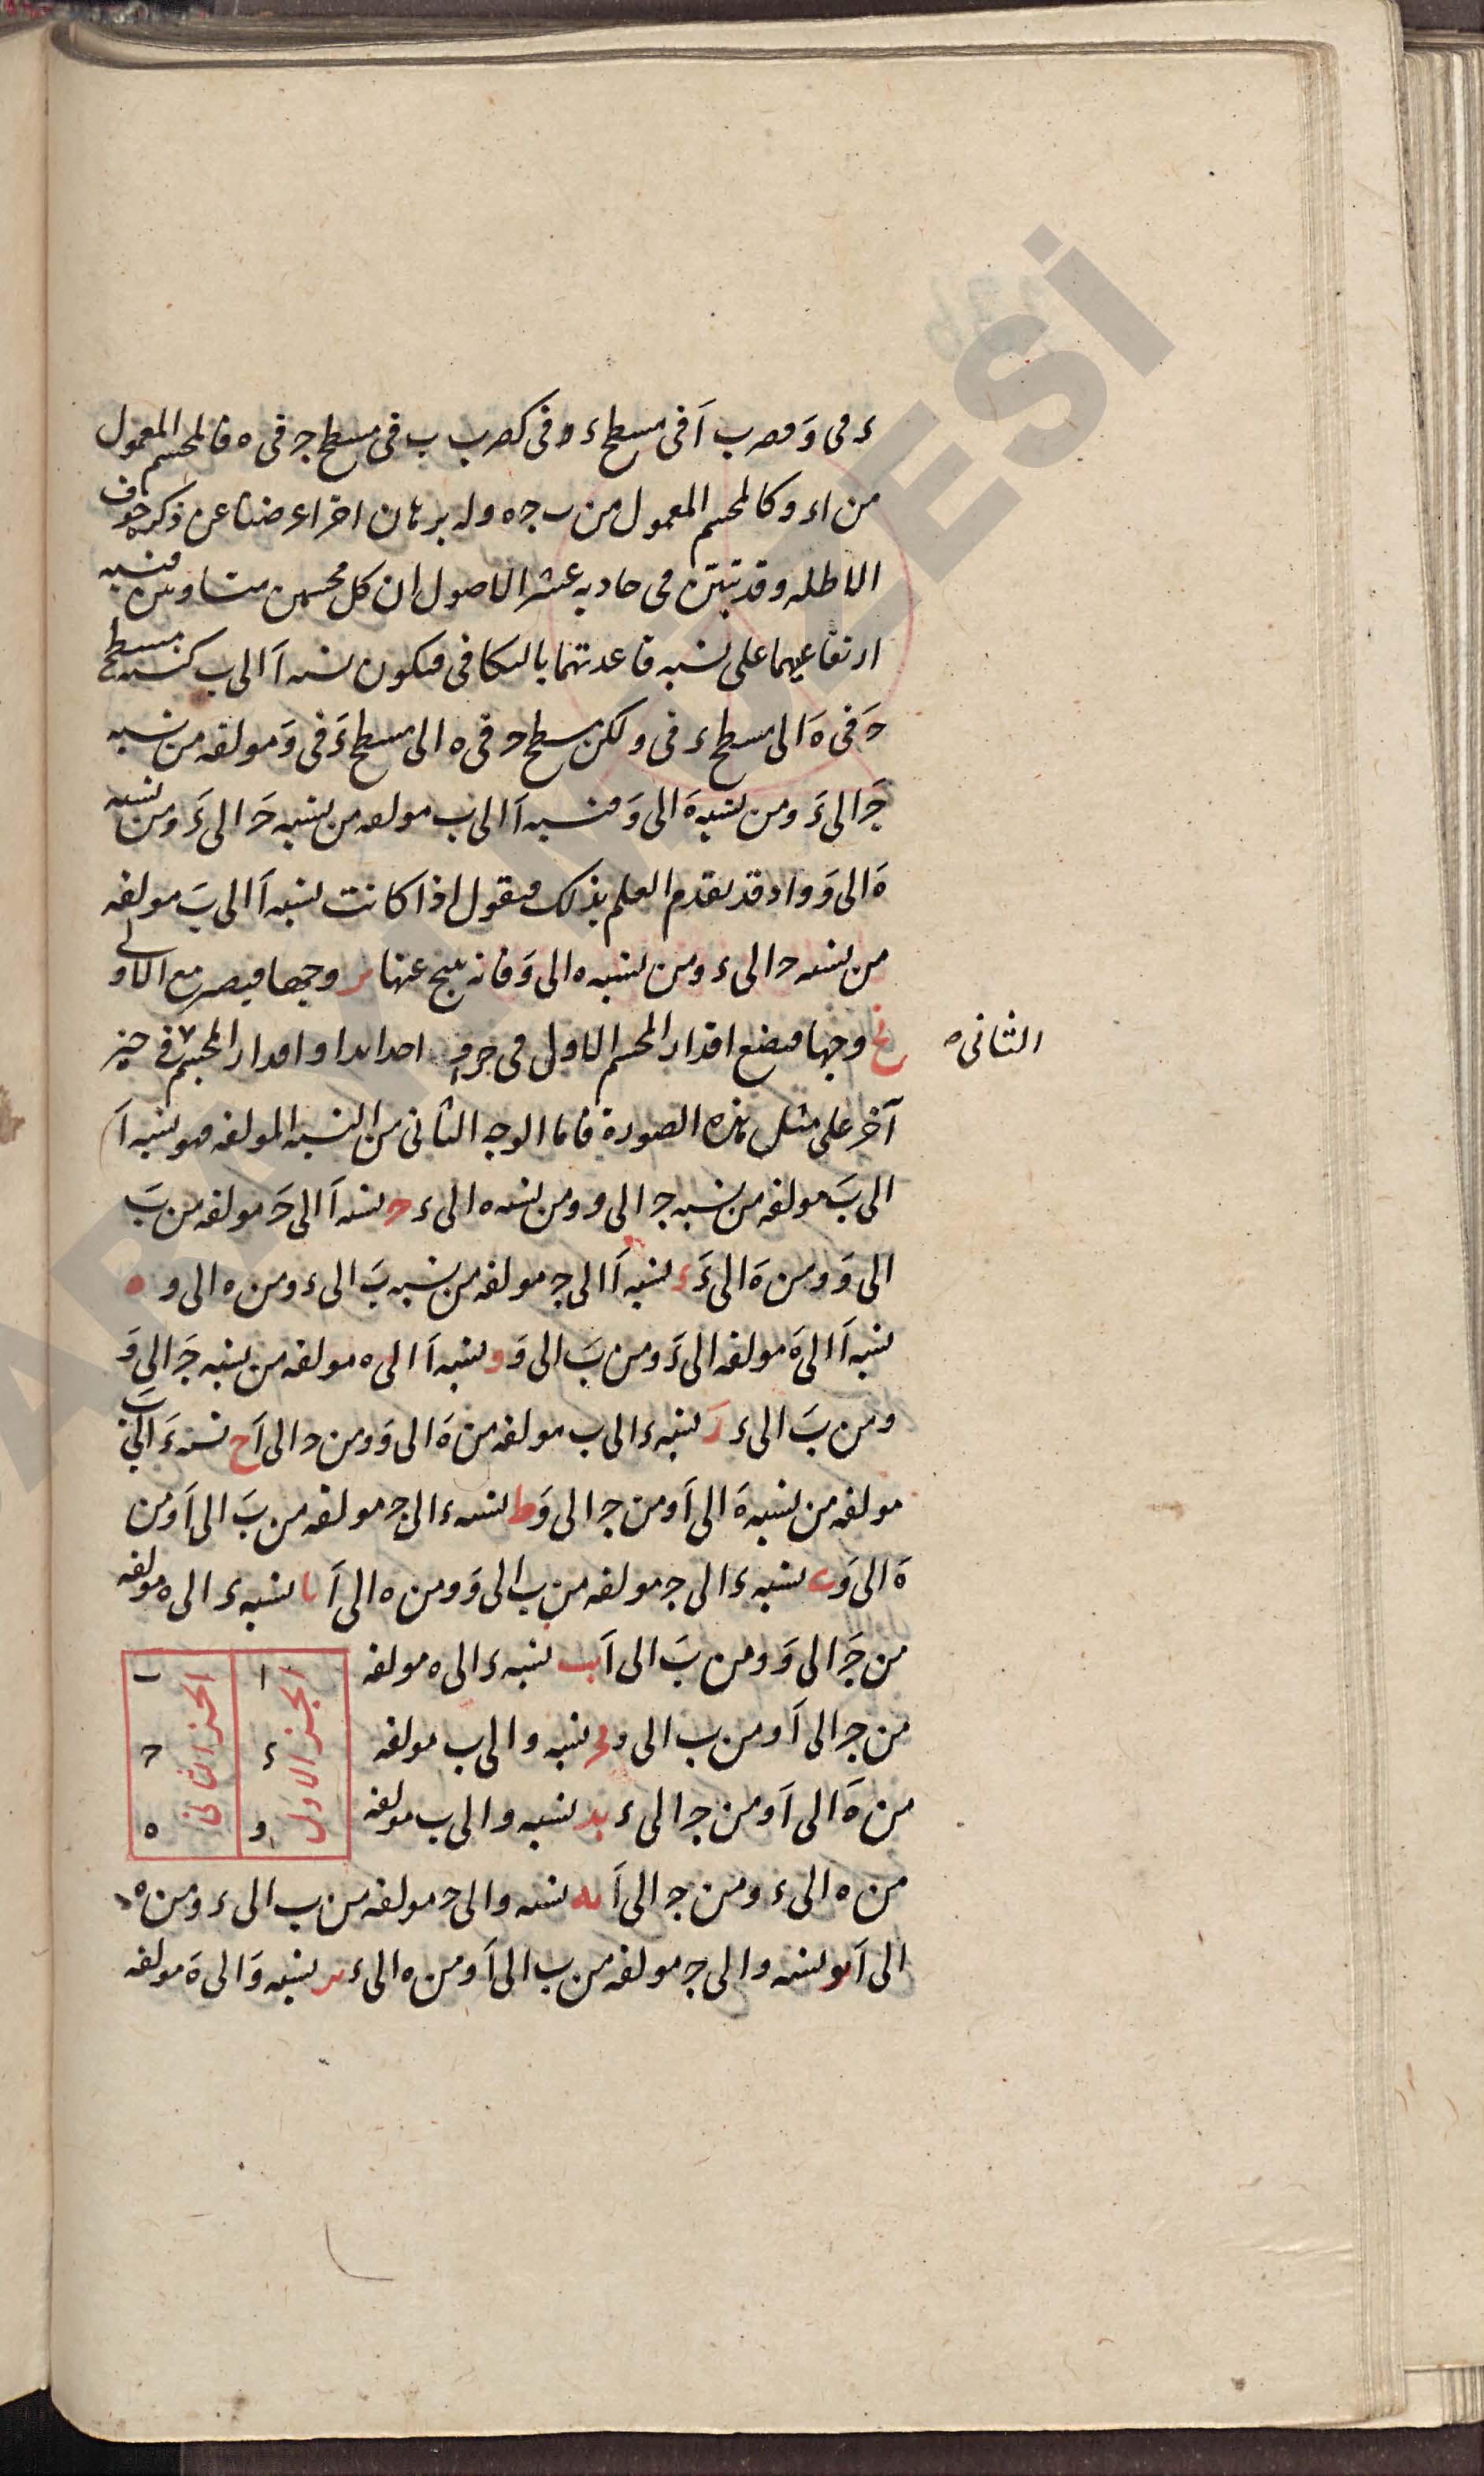 ء فى و فضرب ا فى مسطح ء فى و كضرب ب فى مسطح ج فى ه فالمجسم المعمول
من ا ء و كالمجسم المعمول من ب ج ه وله برهان اخر اعرضنا عن ذكره خوف
الاطله وقد تبين فى حاديه عشر الاصول ان كل مجسمين متساويين فنسبه
ارتفاعيهما على نسبه قاعدتهما بالتكافى فيكون نسبه ا الى ب كنسبه مسطح
ح فى ه الى مسطح ء فى و لكن مسطح ح فى ه الى مسطح ء فى و مولفه من نسبه
ج الى ء ومن نسبه ه الى و فنسبه ا الى ب مولفه من نسبه ح الى ء ومن نسبه
ه الى و واذ قد تقدم العلم بذلك فنقول اذا كانت نسبه ا الى ب مولفه
من نسبه ح الى ء ومن نسبه ه الى و فانه ينتج عنها وجها فيصير مع الاولى
وجها فيضع اقدار المجسم الاول فى احدابدا و اقدار المجسم فى حيز
الثانى
آخر على مثل هذه الصورة فاما الوجه الثانى من النسبه المولفه فهو نسبه ا
الى ب مولفه من نسبه ج الى و ومن نسبه ه الى ء ح نسبه ا الى ح مولفه من ب
الى و ومن ه الى ء ء نسبه ا الى ج مولفه من نسبه ب الى ء ومن ه الى و ه
نسبه ا الى ه مولفه الى ء ومن ب الى و و نسبه ا الى ه مولفه من نسبه ج الى و
ومن ب الى ء ز نسبه ء الى ب مولفه من ه الى و ومن ح الى ا ح نسبه ء الى ب
مولفه من نسبه ه الى ا ومن ج الى و ط نسبه ء الى ج مولفه من ب الى ا ومن
ه الى و ى نسبه ء الى ج مولفه من ب الى و ومن ه الى ا يا نسبه ء الى ه مولفه
من ج الى و ومن ب الى ا يب نسبه ء الى ه مولفه
من ج الى ا ومن ب الى و يج نسبه و الى ب مولفه
من ه الى ا ومن ج الى ء يد نسبه و الى ب مولفه
من ه الى ء ومن ج الى ا يه نسبه و الى ح مولفه من ب الى ء ومن ه
الى ا يو نسبه و الى ج مولفه من ب الى ا ومن ه الى ء يز نسبه و الى ه مولفه
الحيز الاول
ا
ء
و
الحيز الثانى
ب
ح
ه